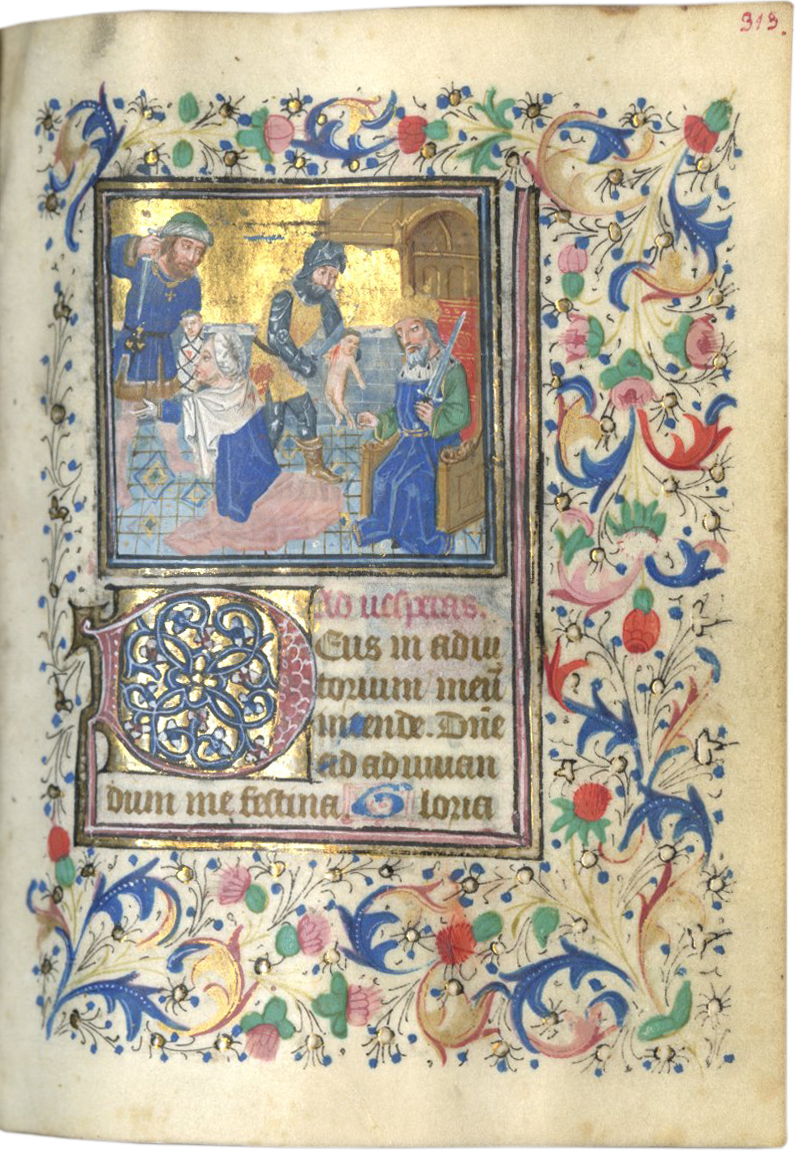 313.
Ad uesperas.
Deus in adiu
torium meũ
intende. Dñe
ad adiuuan
dum me festina Gloria